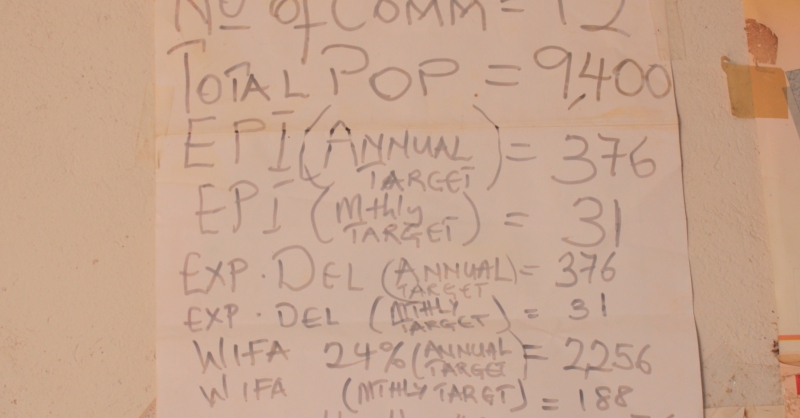 No of Comm = 12
TOTAL POP. = 9,400
EPI (ANNUAL TARGET) = 376
EPI (Mthly TARGET) = 31
EXP. DEL (ANNUAL TARGET) = 376
EXP. DEL (MTHLY TARGET) = 31
WIFA 24% (ANNUAL TARGET) = 2,256
WIFA (MTHLY TARGT) = 188